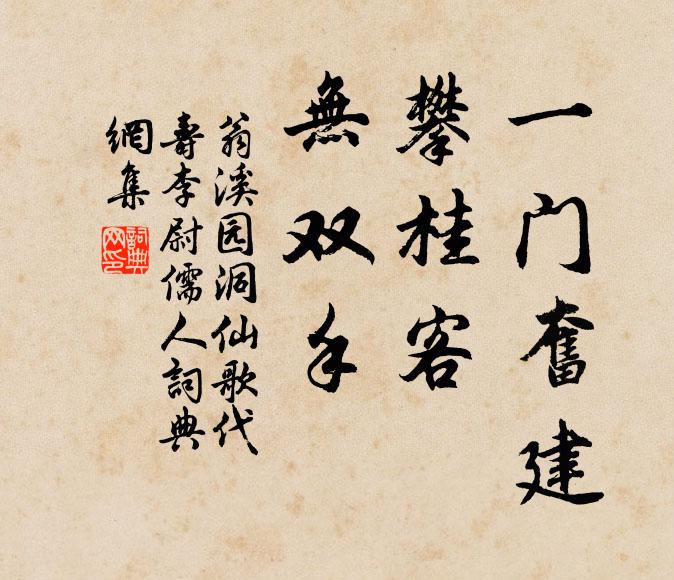 一门奮建
攀桂客
無双手
翁溪园洞仙歌代
壽李尉儒人詞典
網集
詞典
网印